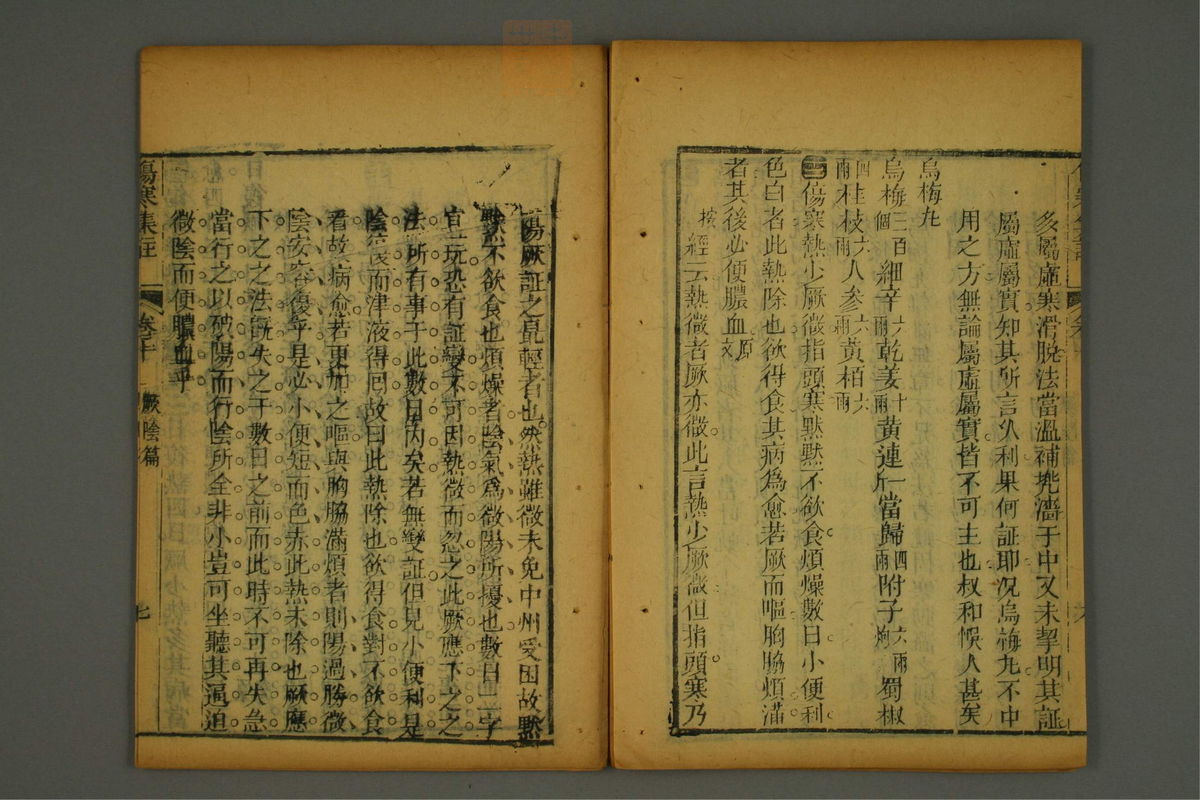 多屬虛寒滑脫法當溫補攙濇于中又未挈明其証
屬虛屬實知其所言久利果何証耶况烏梅丸不中
用之方無論屬虛屬實皆不可主也叔和悞人甚矣
烏梅丸
烏梅三百個 細辛六兩 乾姜十兩 黃連一斤 當歸四兩 附子六兩炮 蜀椒
四兩 桂枝六兩 人參六兩 黃柏六兩
傷寒熱少厥微指頭寒默默不欲食煩燥數日小便利
色白者此熱除也欲得食其病爲愈若厥而嘔胸脇煩滿
者其後必便膿血原文
按經云熱微者厥亦微此言熱少厥微但指頭寒乃
陽厥証之最輕者也然熱雖微未免中州受困故默
默不欲食也煩燥者陰氣爲微陽所擾也數日二字
宜玩恐有証變不可因熱微而忽之此厥應下之之
法所有事于此數日內矣若無變証但見小便利是
陰復而津液得回故曰此熱除也欲得食對不欲食
看故病愈若更加之嘔與胸脇滿煩者則陽過勝微
陰安容復乎是必小便短而色赤此熱未除也厥應
下之之法既失之于數日之前而此時不可再失急
當行之以破陽而行陰所全非小豈可坐聽其逼迫
微陰而便膿血乎
傷寒集註 卷十 厥陰篇 七